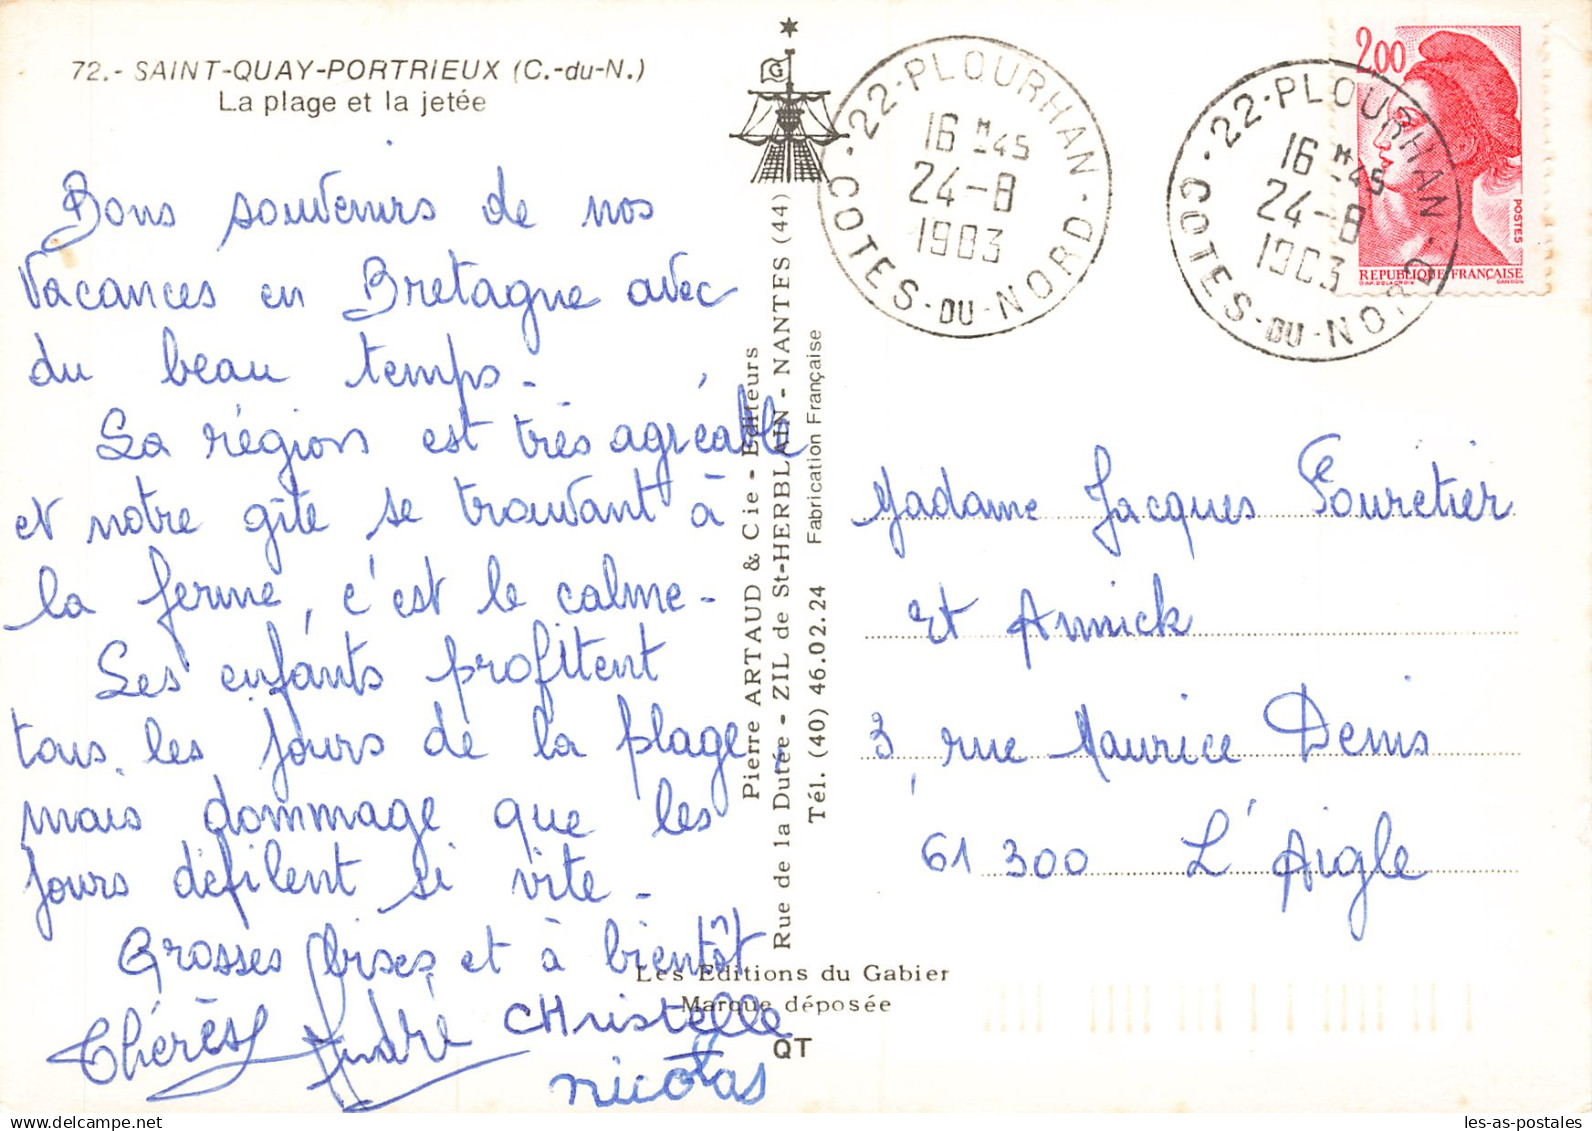 72.- SAINT-QUAY-PORTRIEUX (C.-du-N.)
La plage et la jetée
Bons souvenirs de nos
vacances en Bretagne avec
du beau temps.
La région est très agréable
et notre gîte se trouvant à
la ferme, c'est le calme.
Les enfants profitent
tous les jours de la plage
mais dommage que les
jours défilent si vite.
Grosses bises et à bientôt
Thérèse André CHristelle
nicolas
G
Pierre ARTAUD & Cie - Editeurs
Rue de la Dutée - ZIL de St-HERBLAIN - NANTES (44)
Tél. (40) 46.02.24 Fabrication Française
Les Editions du Gabier
Marque déposée
QT
22-PLOURHAN
16 H 45
24-8
1983
COTES-DU-NORD
22-PLOURHAN
16 H 45
24-8
1983
COTES-DU-NORD
2,00
POSTES
REPUBLIQUE FRANÇAISE
D'AP. DELACROIX GANDON
Madame Jacques Fouretier
et Annick
3, rue Maurice Denis
61 300 L'Aigle
les-as-postales